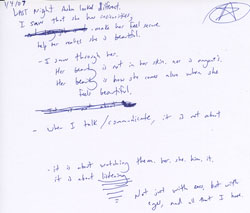 Last Night Asha looked different.
I saw that she has insecurities,
make her feel secure.
help her realize she is beautiful.
- I saw through her.
Her beauty is not in her skin, nor is
Her beauty is how she comes alive when she
feels beautiful.
- when I talk / communicate, it is not about
- it is about watching them. her. she. him. it.
it is about listening
Not just with ears, but with
eyes, and all that I have.